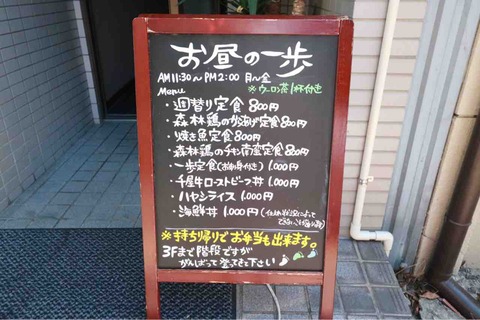 お昼の一歩
AM11:30〜PM2:00 月〜金
Menu ※ウーロン茶1杯付き
・週替り定食 800円
・森林鶏のからあげ定食 800円
・焼き魚定食 800円
・森林鶏のチキン南蛮定食 800円
・一歩定食(お刺身付き) 1.000円
・千屋牛ローストビーフ丼 1.000円
・ハヤシライス 1.000円
・海鮮丼 1.000円(仕入れ状況によって
できないこともあります)
※持ち帰りでお弁当も出来ます。
3Fまで階段ですが
がんばって登ってきて下さい